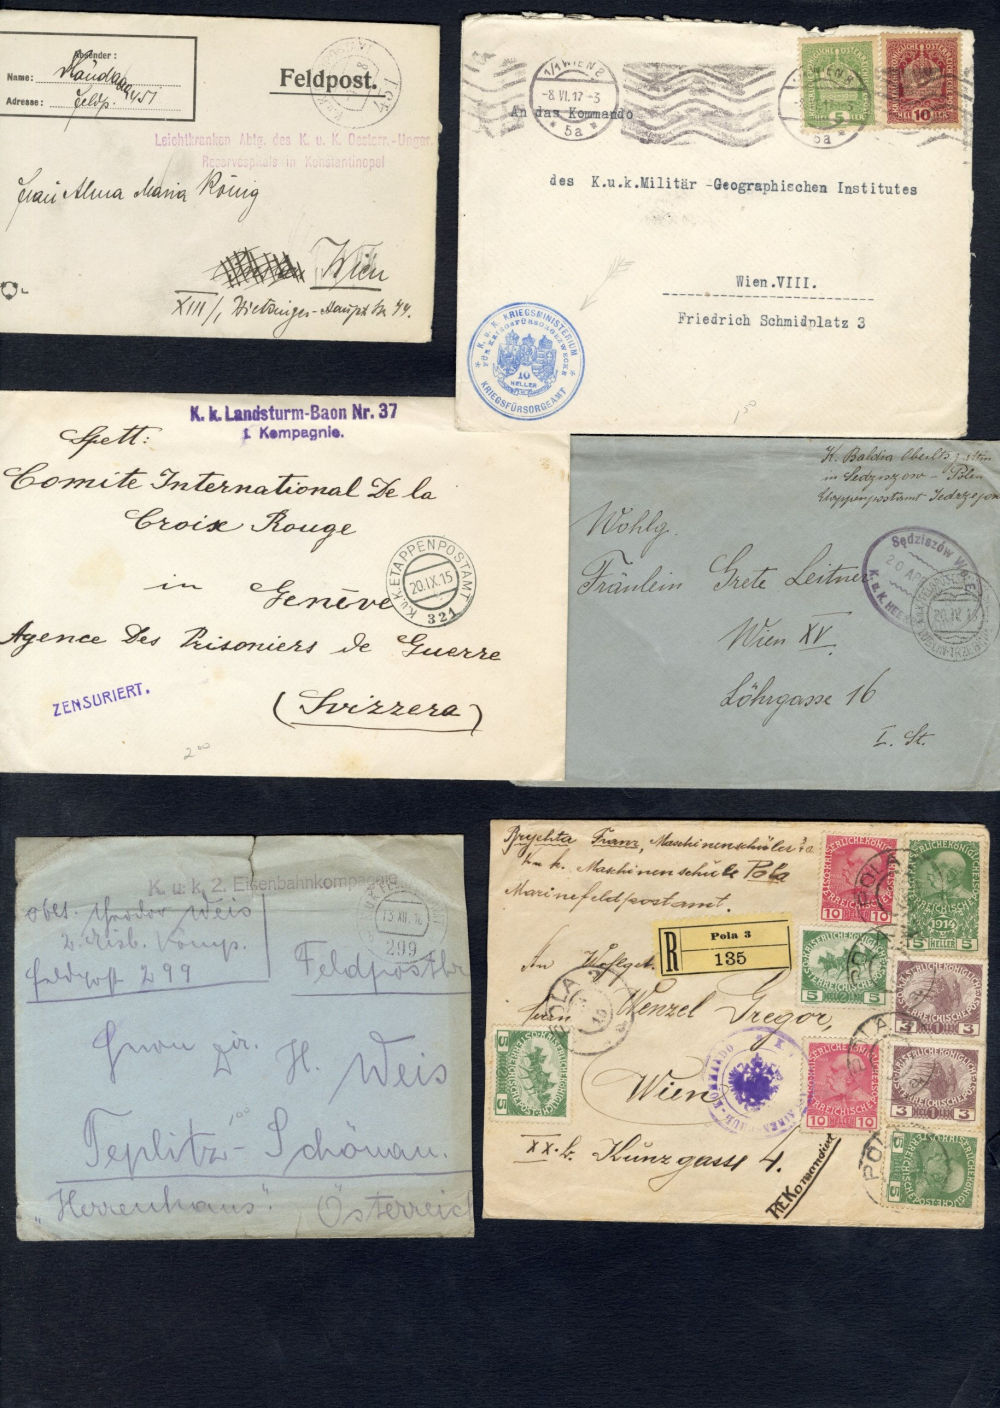 Absender :
Name:
Adresse: Feldp. 451
Feldpost.
Leichtkranken Abtg. des K. u. K. Oesterr.-Ungar.
Reservespitals in Konstantinopel
Frau Alma Maria König
Wien
XIII/, Hietzinger-Haupt
1/1 WIEN 2
-8.VI.17-3
* 5a *
5
10
An das Kommando
des K.u.k.Militär -Geographischen Institutes
Wien.VIII.
Friedrich Schmidplatz 3
* K. u. K. KRIEGSMINISTERIUM *
FÜR KRIEGSFÜRSORGEZWECKE
10
HELLER
KRIEGSFÜRSORGEAMT
K. k. Landsturm-Baon Nr. 37
1. Kompagnie.
Spett:
Comite International De la
Croix Rouge
in Genêve
Agence Des Prisoniers de Guerre
(Svizzera)
K.u.K. ETAPPENPOSTAMT
20.IX.15
321
ZENSURIERT.
2 00
K. Baldia
in Sedziszow - Polen
Etappenpostamt Jedrzejow
Sędziszów
20 APR
20.IV.15
Wohlg.
Fräulein Grete Leitner
Wien XV.
Löhrgasse 16
I. St.
K. u. k. 2. Eisenbahnkompagnie
Oblt. Theodor Weis
2. Eisb. Komp.
Feldpost 299
13.XII.16
299
Feldpostbr
Herrn Dr. H. Weis
Teplitz-Schönau.
"Herrenhaus". Österreich
Brychta Franz, Maschinenschüler
k.u.k. Maschinenschule Pola
Marinefeldpostamt.
R
Pola 3
135
An Wohlgeb.
Herrn Wenzel Gregor,
Wien
XX. b. Kunzgasse 4.
POLA
10 10
5 1914 5
HELLER
5 5
3 3
3 3
10 10
5 5
5 5